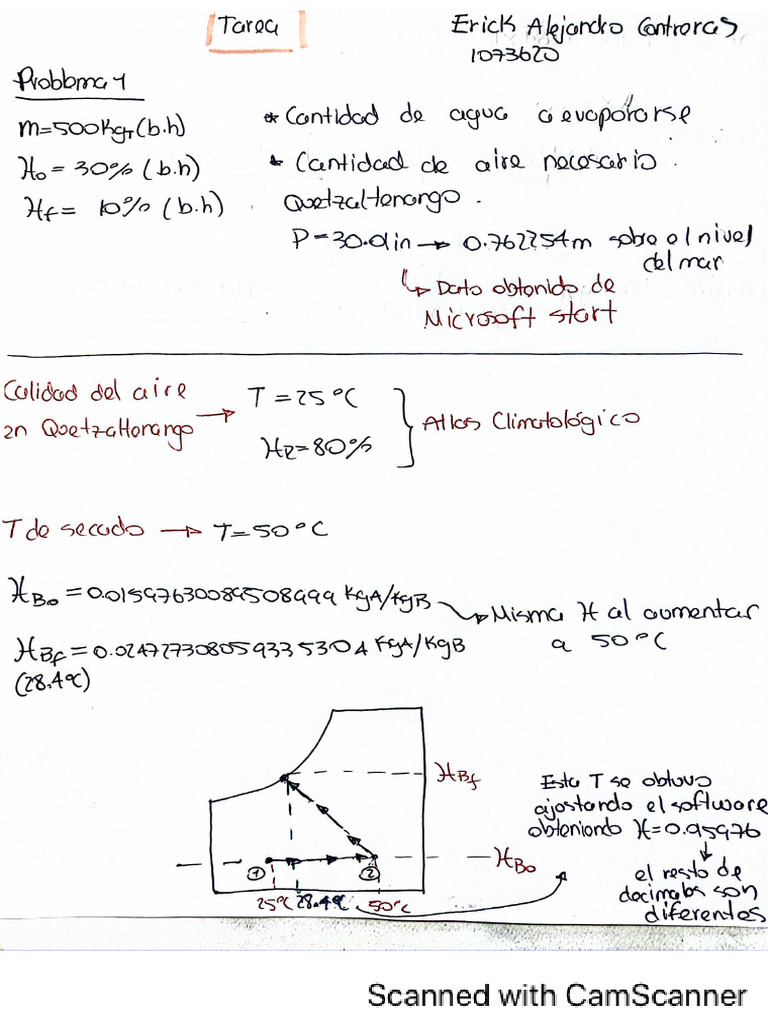 Tarea
Erick Alejandro Contreras
1073620
Problema 1
m=500KgT(b.h)
Ho = 30% (b.h)
Hf = 10% (b.h)
* Cantidad de agua a evaporarse
* Cantidad de aire necesario.
Quetzaltenango.
P=30.01in → 0.762254m sobre el nivel
del mar
↳ Dato obtenido de
Microsoft start
Calidad del aire
en Quetzaltenango → T = 25°C
HR=80%
Atlas Climatológico
T de secado → T=50°C
HBo = 0.01597630089508999 KgA/KgB → Misma H al aumentar
a 50°C
HBf = 0.024727308059335304 KgA/KgB
(28.4°C)
HBf
HBo
1
2
25°C 28.4°C 50°C
Esta T se obtuvo
ajustando el software
obteniendo H=0.95976
↓
el resto de
decimales son
diferentes
Scanned with CamScanner